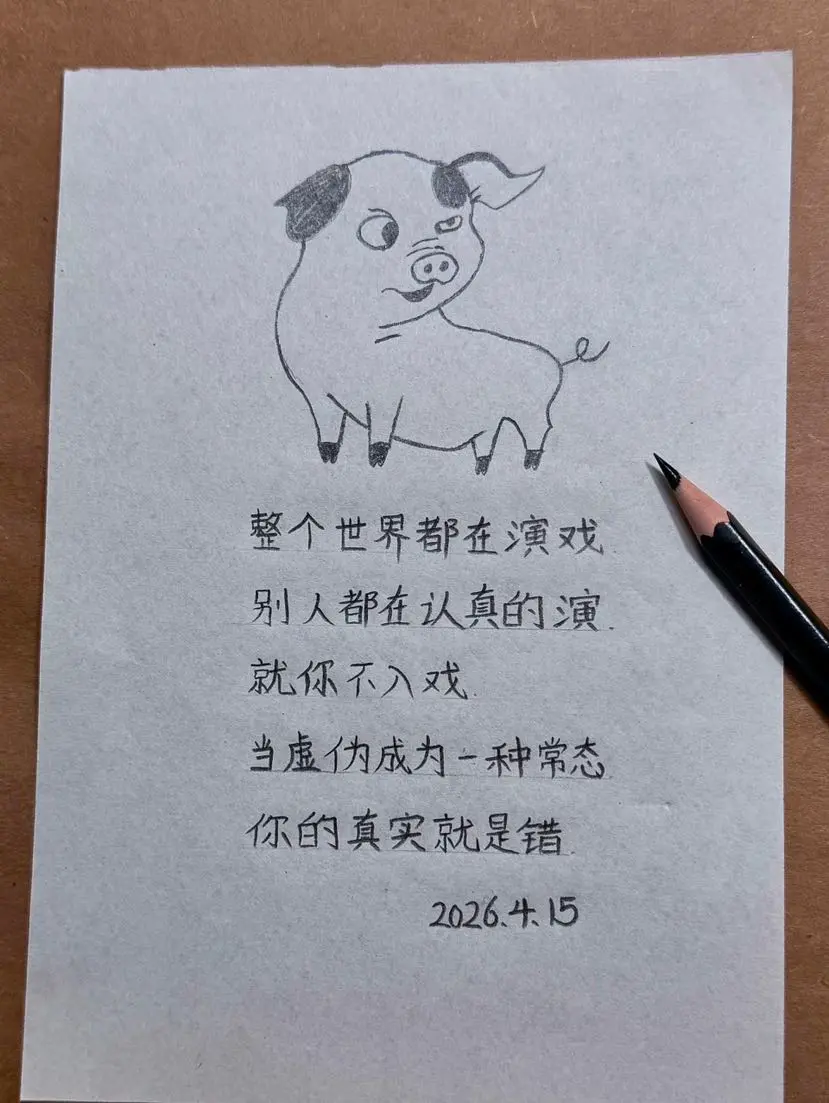 整个世界都在演戏.
别人都在认真的演.
就你不入戏.
当虚伪成为一种常态.
你的真实就是错.
2026.4.15